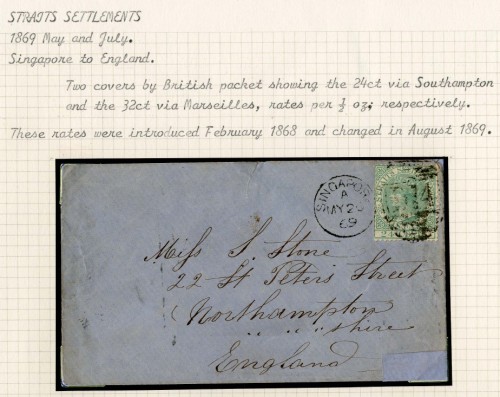 STRAITS SETTLEMENTS
1869 May and July.
Singapore to England.
Two covers by British packet showing the 24ct via Southampton
and the 32ct via Marseilles, rates per ½ oz; respectively.
These rates were introduced February 1868 and changed in August 1869.
SINGAPORE
A
MY 2
69
Miss S. Stone
22 St Peters Street
Northampton
" " " shire
England